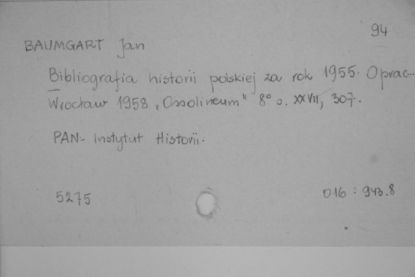 94
BAUMGART Jan
Bibliografia historii polskiej za rok 1955. Oprac...
Wrocław 1958 „Ossolineum" 8° s. XXVII, 307.
PAN- Instytut Historii.
5275
016 : 943.8